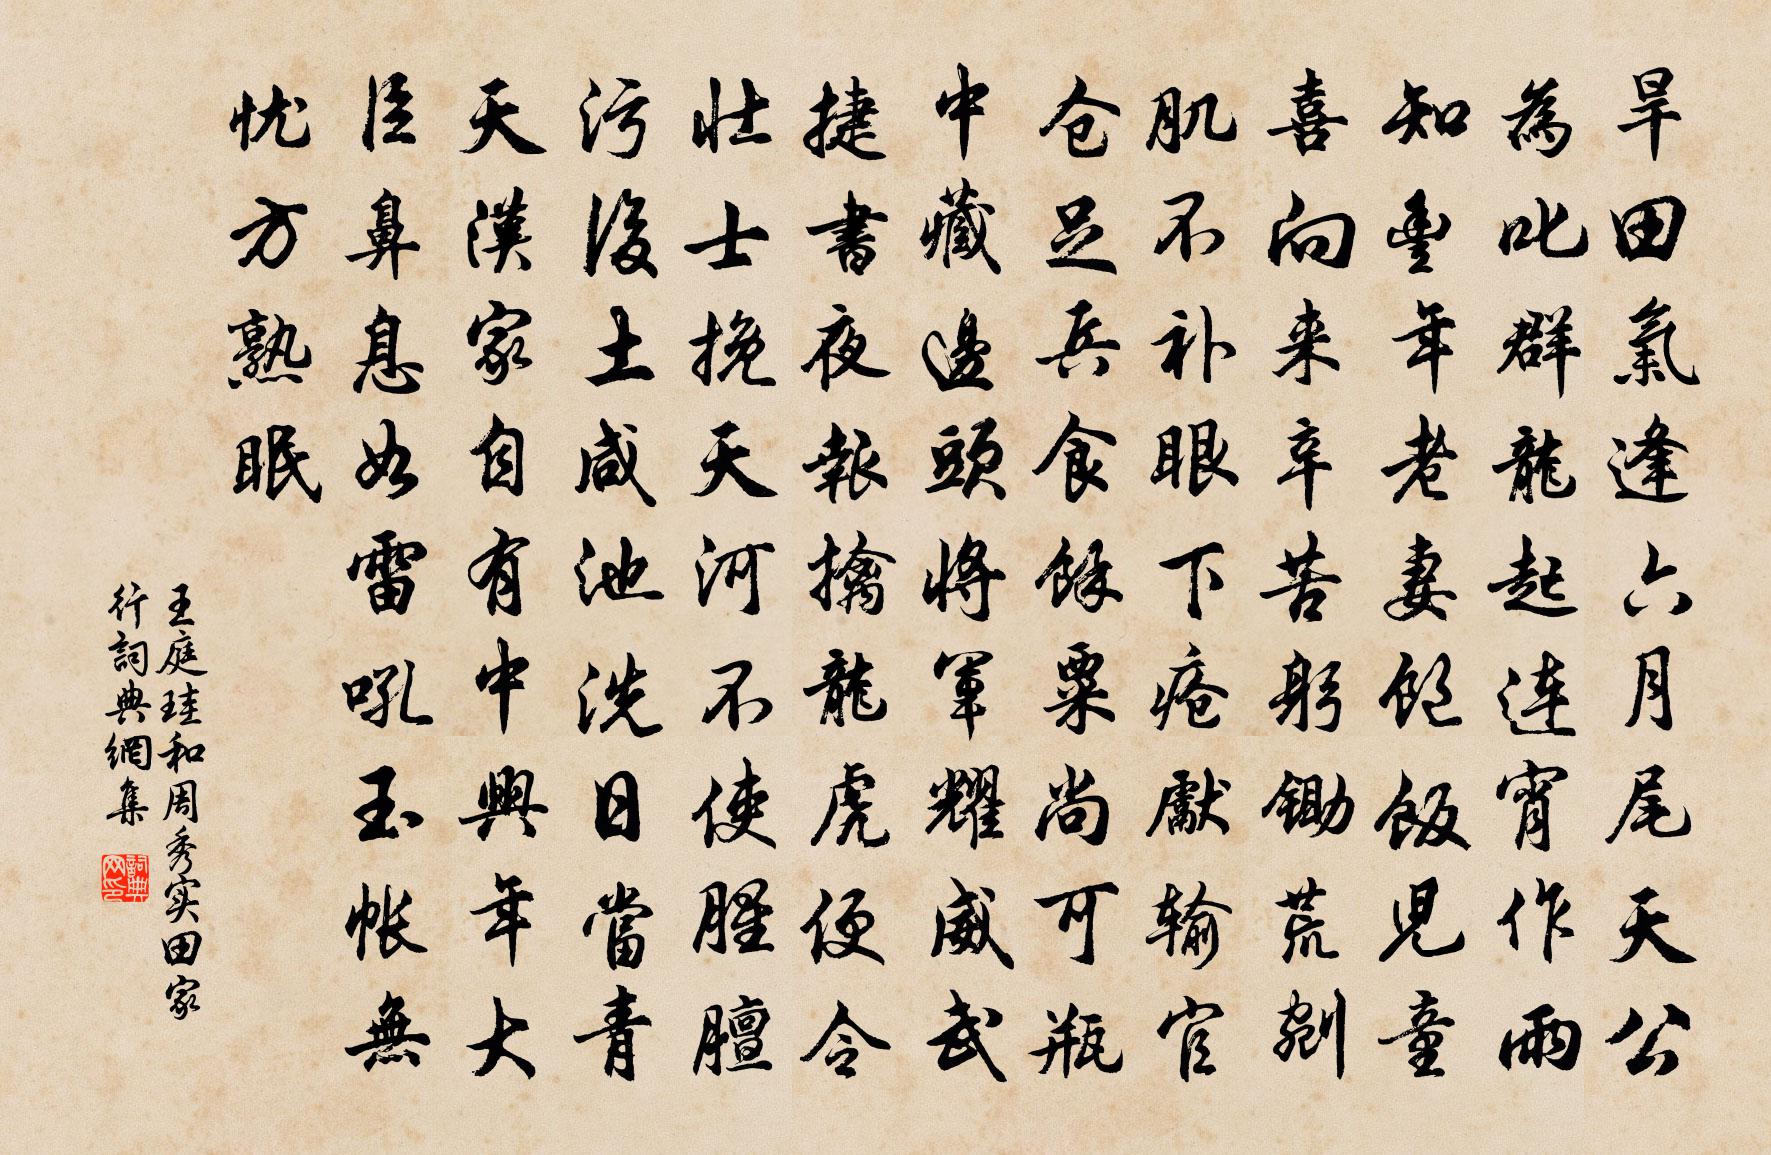 旱田氣逢六月尾天公
為叱群龍起連宵作雨
知豊年老妻飽飯兒童
喜向来辛苦躬鋤荒剜
肌不补眼下瘡獻输官
仓足兵食餘粟尚可瓶
中藏邊頭將軍耀威武
捷書夜報擒龍虎便令
壮士挽天河不使腥膻
污後土咸池洗日當青
天漢家自有中興年大
臣鼻息如雷吼玉帐無
忧方熟眠
王庭珪和周秀实田家
行詞典網集
詞典网印